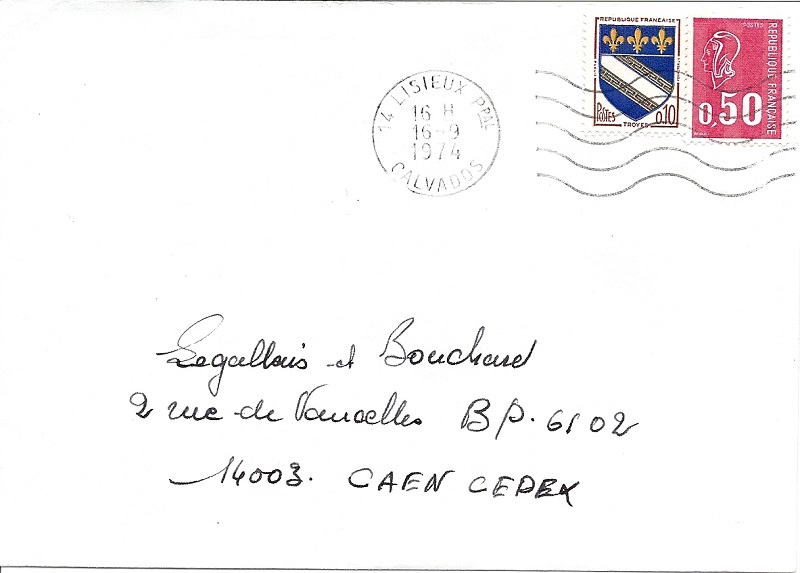 REPUBLIQUE FRANÇAISE
POSTES 0,10
TROYES
POSTES
REPUBLIQUE FRANÇAISE
0,50
14 LISIEUX PPAL
16 H
16-9
1974
CALVADOS
Legallais et Bouchard
2 rue de Vaucelles BP. 6102
14003. CAEN CEDEX